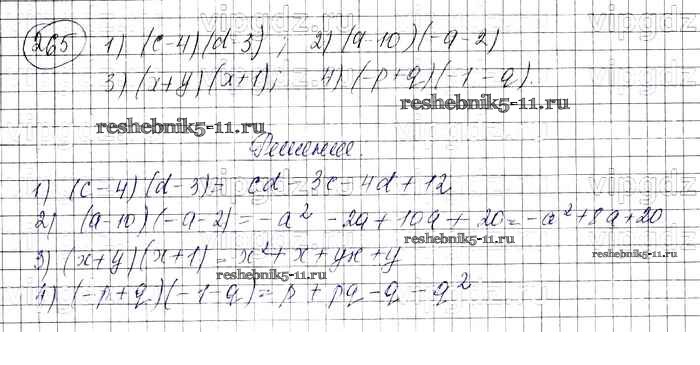 vipgdz.ru
265 1) (c-4)(d-3); 2) (a-10)(-a-2)
3) (x+y)(x+1); 4) (-p+q)(-1-q).
reshebnik5-11.ru
reshebnik5-11.ru
Решение.
1) (c-4)(d-3)= cd-3c-4d+12
2) (a-10)(-a-2)=-a²-2a+10a+20=-a²+8a+20
reshebnik5-11.ru
3) (x+y)(x+1)=x²+x+yx+y
reshebnik5-11.ru
reshebnik5-11.ru
4) (-p+q)(-1-q)=p+pq-q-q²